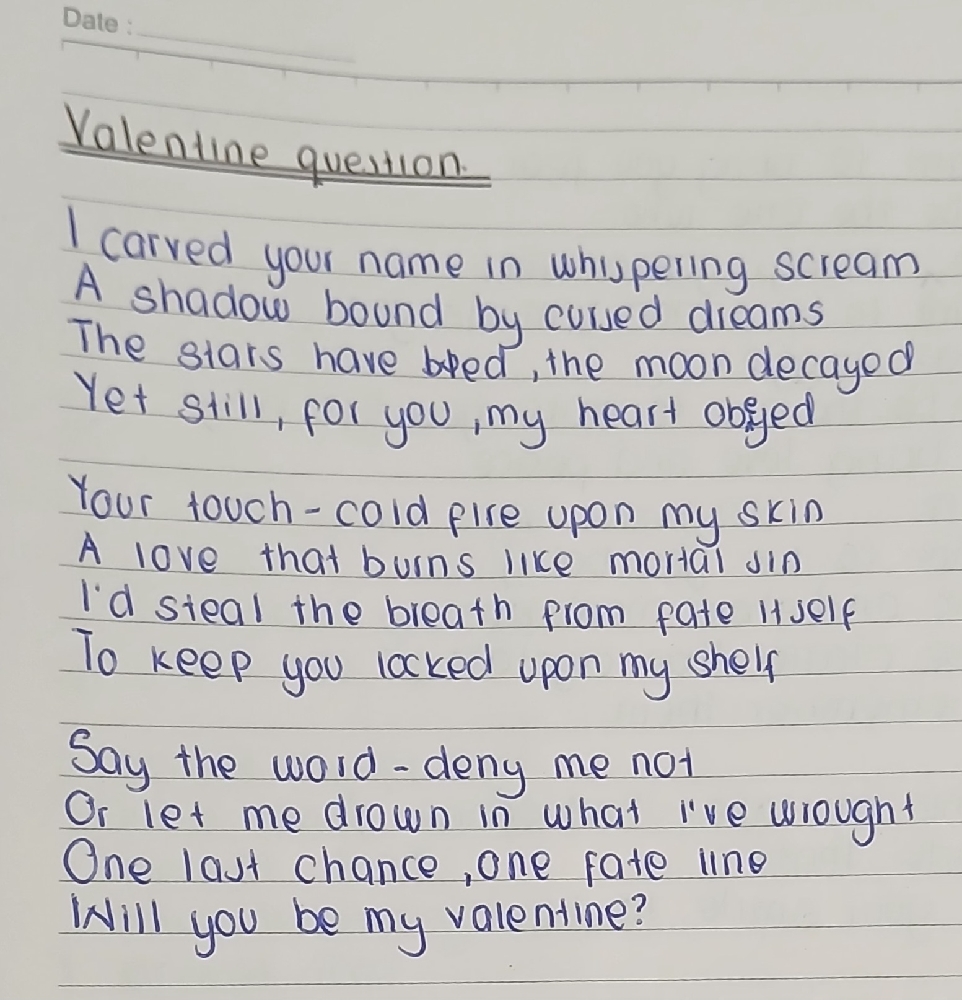 Date :
Valentine question.
I carved your name in whispering scream
A shadow bound by cursed dreams
The stars have bled, the moon decayed
Yet still, for you, my heart obeyed
Your touch - cold fire upon my skin
A love that burns like mortal sin
I'd steal the breath from fate itself
To keep you locked upon my shelf
Say the word - deny me not
Or let me drown in what I've wrought
One last chance, one fate line
Will you be my valentine?